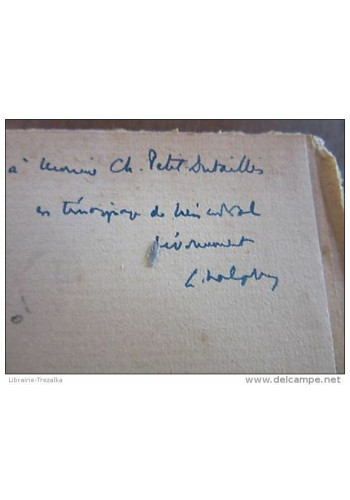 à Monsieur Ch. Petit-Dutaillis
en témoignage de bien cordial
dévouement
Libraine-Trezalka
www.delcampe.net